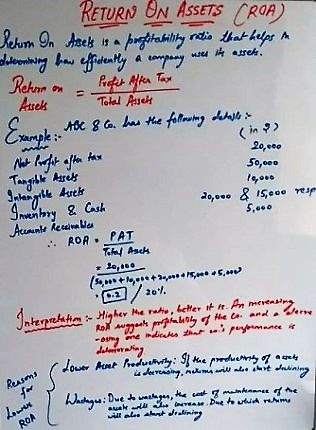 RETURN ON ASSETS (ROA)
Return On Assets is a profitability ratio that helps in
determining how efficiently a company uses its assets.
Return on Assets = Profit After Tax / Total Assets
Example:- ABC & Co. has the following details:-
(in ₹)
Net Profit after tax 20,000
Tangible Assets 50,000
Intangible Assets 10,000
Inventory & Cash 20,000 & 15,000 resp
Accounts Receivables 5,000
∴ ROA = PAT / Total Assets
= 20,000
50,000+10,000+20,000+15,000+5,000
= 0.2 / 20%
Interpretation:- Higher the ratio, better it is. An increasing
ROA suggests profitability of the Co. and a decre
-asing one indicates that co's performance is
deteriorating
Reasons for Lower ROA
Lower Asset Productivity: If the productivity of assets
is decreasing, returns will also start declining
Wastages: Due to wastages, the cost of maintenance of the
assets will also increase. Due to which returns
will also start declining